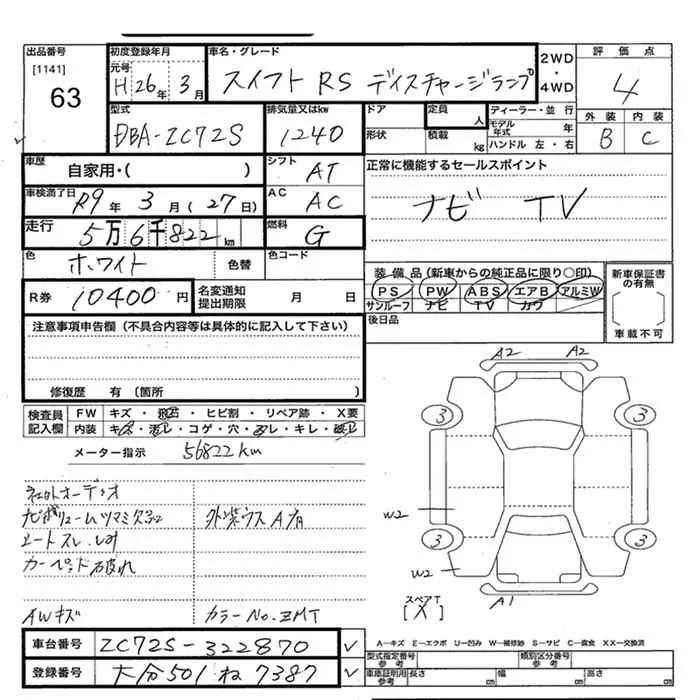 出品番号
[1141]
63
初度登録年月
元号
H 26年 3月
車名・グレード
スイフト RS ディスチャージランプ
2WD
・
4WD
評価点
4
外装 内装
B C
型式
DBA-ZC72S
排気量又はkw
1240
ドア
形状
定員
人
積載
kg
ディーラー・並行
モデル年式 年
ハンドル 左・右
車歴
自家用・( )
シフト
AT
正常に機能するセールスポイント
ナビ TV
車検満了日
R9年 3月(27日)
AC
AC
走行
5万6千822km
燃料
G
色
ホワイト
色替
色コード
装備品(新車からの純正品に限り○印)
PS PW ABS エアB アルミW
サンルーフ ナビ TV カワ
新車保証書の有無
〔 〕
車載不可
R券 10400円
名変通知
提出期限 月 日
後日品
注意事項申告欄(不具合内容等は具体的に記入して下さい)
修復歴 有〔箇所 〕
検査員記入欄
FW キズ・飛石・ヒビ割・リペア跡・X要
内装 キズ・汚レ・コゲ・穴・スレ・キレ・破レ
メーター指示 56822km
A2 A2
3 3
W2
3 3
W2
A1
スペアT
[X]
社外オーディオ
ナビボリュームツマミ欠品 外装ウスA有
シートスレ・シミ
カーペット破れ
AWキズ カラーNo.ZMT
車台番号 ZC72S-322870
登録番号 大分501ね7387
A―キズ E―エクボ U―凹み W―補修跡 S―サビ C―腐食 XX―交換済
型式指定番号 参考
類別区分番号 参考
車庫証明用 参考 長さ cm 幅 cm 高さ cm